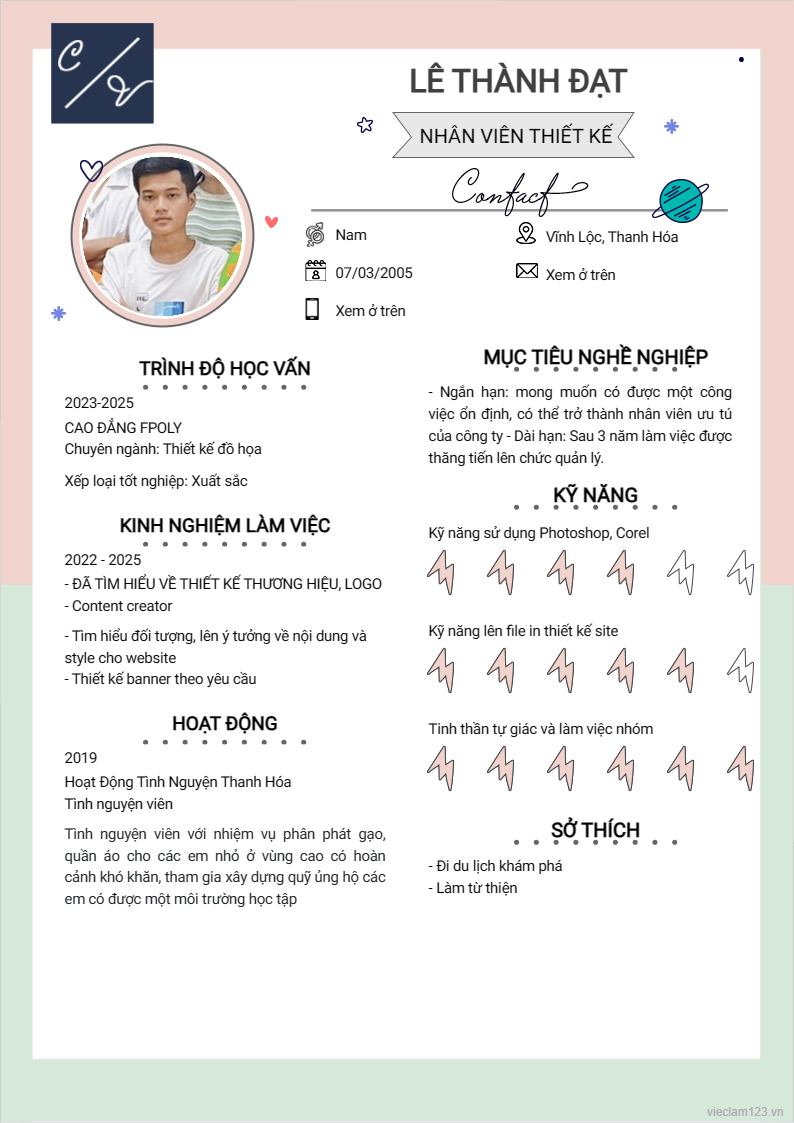 CV
LÊ THÀNH ĐẠT
NHÂN VIÊN THIẾT KẾ
Contact
Nam
Vĩnh Lộc, Thanh Hóa
07/03/2005
Xem ở trên
Xem ở trên
TRÌNH ĐỘ HỌC VẤN
2023-2025
CAO ĐẲNG FPOLY
Chuyên ngành: Thiết kế đồ họa
Xếp loại tốt nghiệp: Xuất sắc
KINH NGHIỆM LÀM VIỆC
2022 - 2025
- ĐÃ TÌM HIỂU VỀ THIẾT KẾ THƯƠNG HIỆU, LOGO
- Content creator
- Tìm hiểu đối tượng, lên ý tưởng về nội dung và
style cho website
- Thiết kế banner theo yêu cầu
HOẠT ĐỘNG
2019
Hoạt Động Tình Nguyện Thanh Hóa
Tình nguyện viên
Tình nguyện viên với nhiệm vụ phân phát gạo,
quần áo cho các em nhỏ ở vùng cao có hoàn
cảnh khó khăn, tham gia xây dựng quỹ ủng hộ các
em có được một môi trường học tập
MỤC TIÊU NGHỀ NGHIỆP
- Ngắn hạn: mong muốn có được một công
việc ổn định, có thể trở thành nhân viên ưu tú
của công ty - Dài hạn: Sau 3 năm làm việc được
thăng tiến lên chức quản lý.
KỸ NĂNG
Kỹ năng sử dụng Photoshop, Corel
Kỹ năng lên file in thiết kế site
Tinh thần tự giác và làm việc nhóm
SỞ THÍCH
- Đi du lịch khám phá
- Làm từ thiện
vieclam123.vn